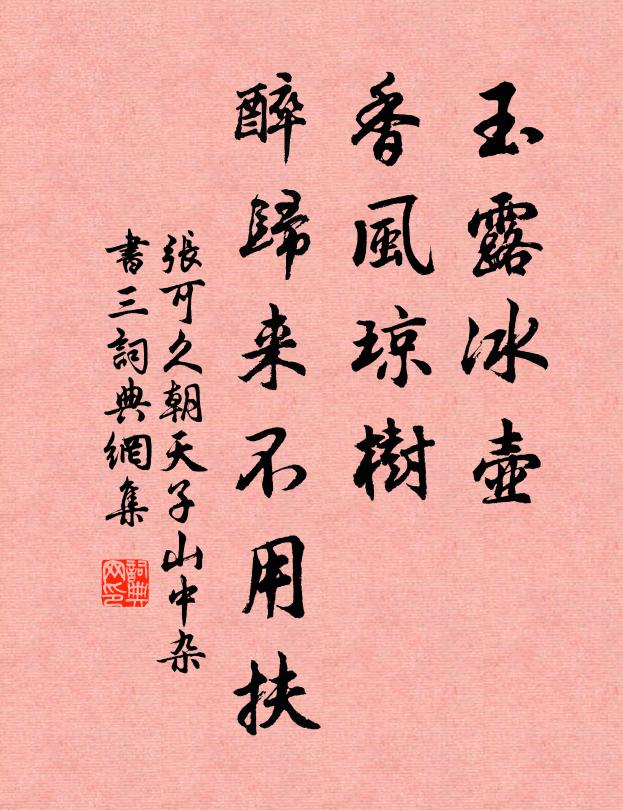 玉露冰壺
香風琼樹
醉歸来不用扶
張可久朝天子山中杂
書三詞典網集
詞典网印